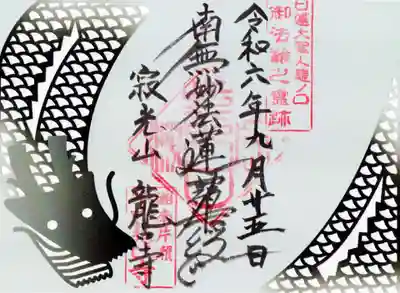 日蓮大聖人龍ノ口
御法難之霊跡
令和六年九月廿五日
南無妙法蓮華経
寂光山 龍口寺